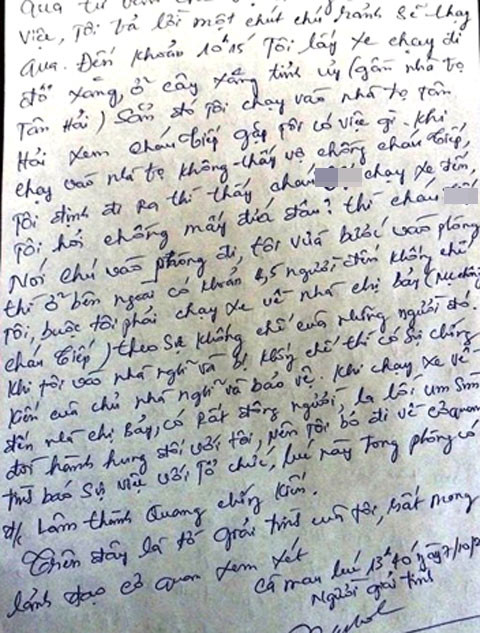 qua từ
việc, Tôi trả lời một chút chú rảnh sẽ thay
qua. Đến khoản 10h15 Tôi lấy xe chạy đi
đổ xăng, ở cây xăng tỉnh ủy (gần nhà trọ
Tân Hải) Sẳn đó Tôi chạy vào nhà trọ Tân
Hải xem cháu Tiếp gặp tôi có việc gì. Khi
chạy vào nhà trọ không thấy vợ chồng cháu Tiếp,
Tôi định đi ra thì thấy cháu chạy xe đến,
Tôi hỏi chồng mầy đứa đâu? thì cháu
Nói chú vào phòng đi, tôi vừa bước vào phòng
thì ở bên ngoài có khoản 4,5 người đến khống chế
Tôi, buộc tôi phải chạy xe về nhà chị Bảy (
cháu Tiếp) theo sự khống chế của những người đó.
Khi tôi vào nhà nghĩ và bị khống chế thì có sự chứng
kiến của chủ nhà nghĩ và bảo vệ. Khi chạy xe về
đến nhà chị Bảy, có rất đông người, la lối um sùm
đòi hành hung đối với tôi, nên tôi bỏ đi về cơ quan
trình báo sự việc với Tổ chức, lúc này trong phòng có
đ/c Lâm Thành Quang chứng kiến.
Trên đây là tờ giải trình của tôi, rất mong
lãnh đạo cơ quan xem xét
Cà Mau lúc 13h40 ngày 7/10/2
Người giải trình